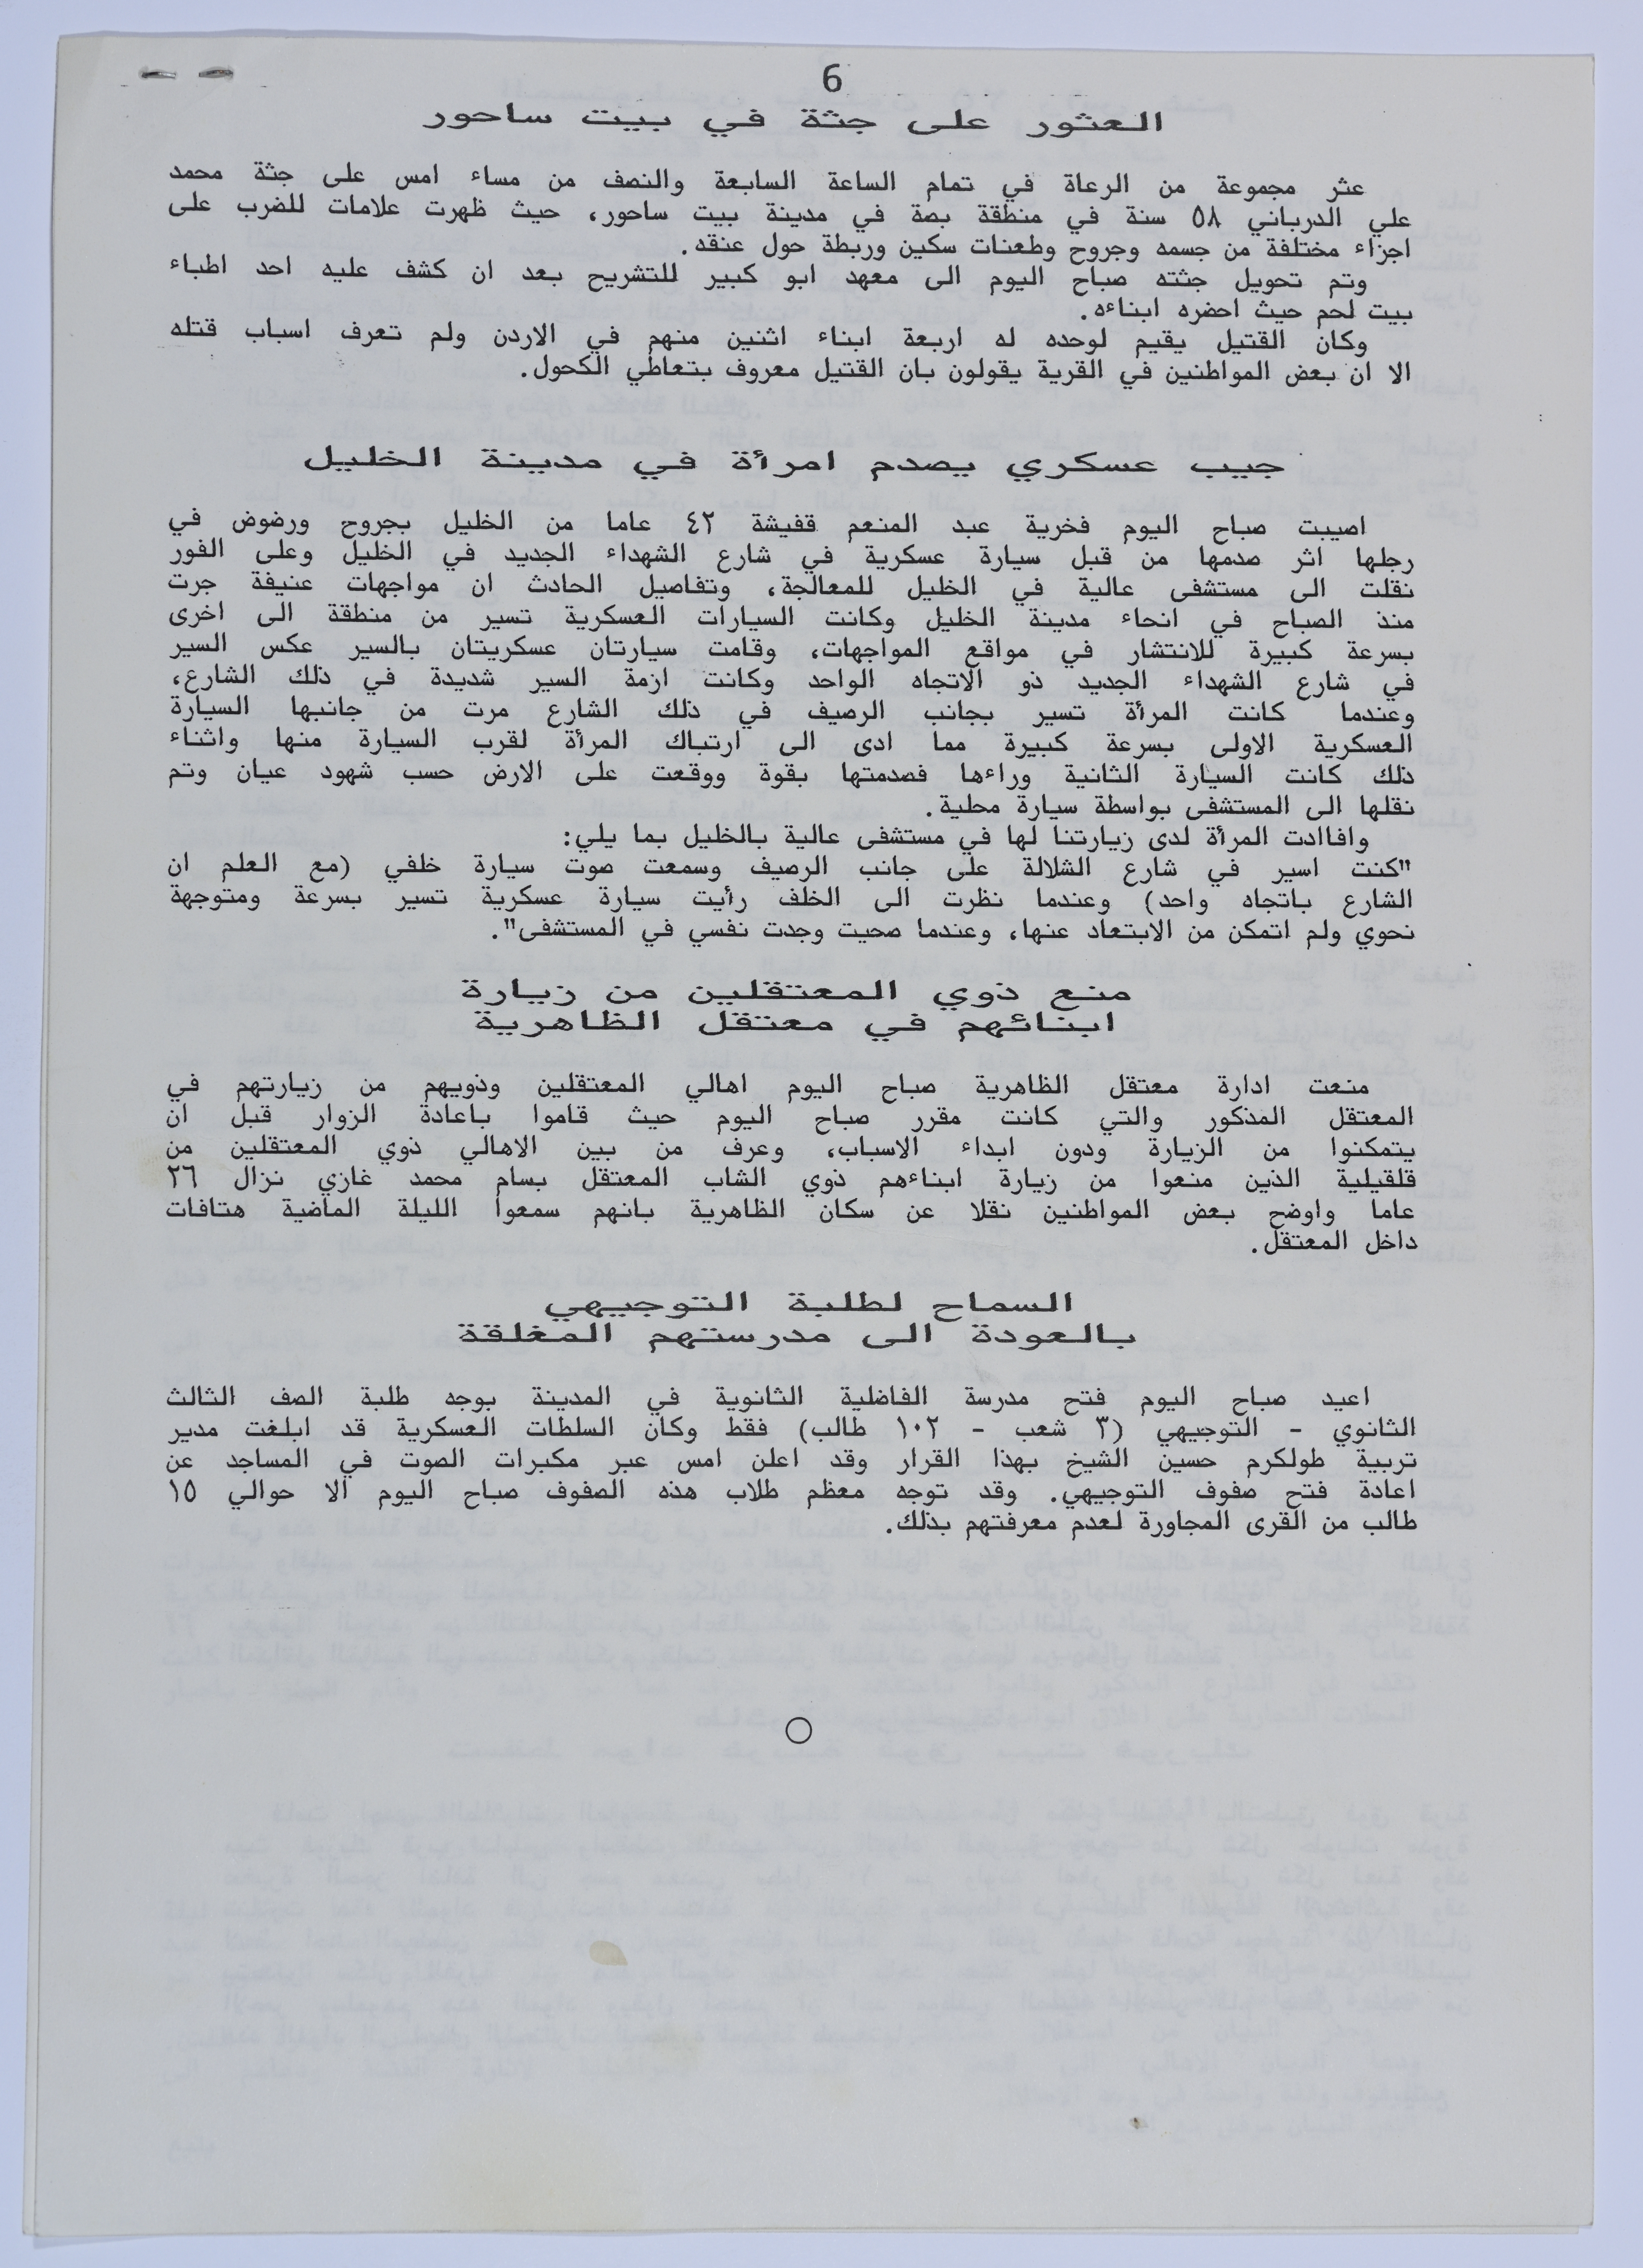 6
العثور على جثة في بيت ساحور
عثر مجموعة من الرعاة في تمام الساعة السابعة والنصف من مساء امس على جثة محمد
علي الدرباني ٥٨ سنة في منطقة بصة في مدينة بيت ساحور، حيث ظهرت علامات للضرب على
اجزاء مختلفة من جسمه وجروح وطعنات سكين وربطة حول عنقه.
وتم تحويل جثته صباح اليوم الى معهد ابو كبير للتشريح بعد ان كشف عليه احد اطباء
بيت لحم حيث احضره ابناءه.
وكان القتيل يقيم لوحده له اربعة ابناء اثنين منهم في الاردن ولم تعرف اسباب قتله
الا ان بعض المواطنين في القرية يقولون بان القتيل معروف بتعاطي الكحول.
جيب عسكري يصدم امرأة في مدينة الخليل
اصيبت صباح اليوم فخرية عبد المنعم قفيشة ٤٢ عاما من الخليل بجروح ورضوض في
رجلها اثر صدمها من قبل سيارة عسكرية في شارع الشهداء الجديد في الخليل وعلى الفور
نقلت الى مستشفى عالية في الخليل للمعالجة، وتفاصيل الحادث ان مواجهات عنيفة جرت
منذ الصباح في انحاء مدينة الخليل وكانت السيارات العسكرية تسير من منطقة الى اخرى
بسرعة كبيرة للانتشار في مواقع المواجهات، وقامت سيارتان عسكريتان بالسير عكس السير
في شارع الشهداء الجديد ذو الاتجاه الواحد وكانت ازمة السير شديدة في ذلك الشارع،
وعندما كانت المرأة تسير بجانب الرصيف في ذلك الشارع مرت من جانبها السيارة
العسكرية الاولى بسرعة كبيرة مما ادى الى ارتباك المرأة لقرب السيارة منها واثناء
ذلك كانت السيارة الثانية وراءها فصدمتها بقوة ووقعت على الارض حسب شهود عيان وتم
نقلها الى المستشفى بواسطة سيارة محلية.
وافاادت المرأة لدى زيارتنا لها في مستشفى عالية بالخليل بما يلي:
"كنت اسير في شارع الشلالة على جانب الرصيف وسمعت صوت سيارة خلفي (مع العلم ان
الشارع باتجاه واحد) وعندما نظرت الى الخلف رأيت سيارة عسكرية تسير بسرعة ومتوجهة
نحوي ولم اتمكن من الابتعاد عنها، وعندما صحيت وجدت نفسي في المستشفى".
منع ذوي المعتقلين من زيارة
ابنائهم في معتقل الظاهرية
منعت ادارة معتقل الظاهرية صباح اليوم اهالي المعتقلين وذويهم من زيارتهم في
المعتقل المذكور والتي كانت مقرر صباح اليوم حيث قاموا باعادة الزوار قبل ان
يتمكنوا من الزيارة ودون ابداء الاسباب، وعرف من بين الاهالي ذوي المعتقلين من
قلقيلية الذين منعوا من زيارة ابناءهم ذوي الشاب المعتقل بسام محمد غازي نزال ٢٦
عاما واوضح بعض المواطنين نقلا عن سكان الظاهرية بانهم سمعوا الليلة الماضية هتافات
داخل المعتقل.
السماح لطلبة التوجيهي
بالعودة الى مدرستهم المغلقة
اعيد صباح اليوم فتح مدرسة الفاضلية الثانوية في المدينة بوجه طلبة الصف الثالث
الثانوي - التوجيهي (٣ شعب - ١٠٢ طالب) فقط وكان السلطات العسكرية قد ابلغت مدير
تربية طولكرم حسين الشيخ بهذا القرار وقد اعلن امس عبر مكبرات الصوت في المساجد عن
اعادة فتح صفوف التوجيهي. وقد توجه معظم طلاب هذه الصفوف صباح اليوم الا حوالي ١٥
طالب من القرى المجاورة لعدم معرفتهم بذلك.